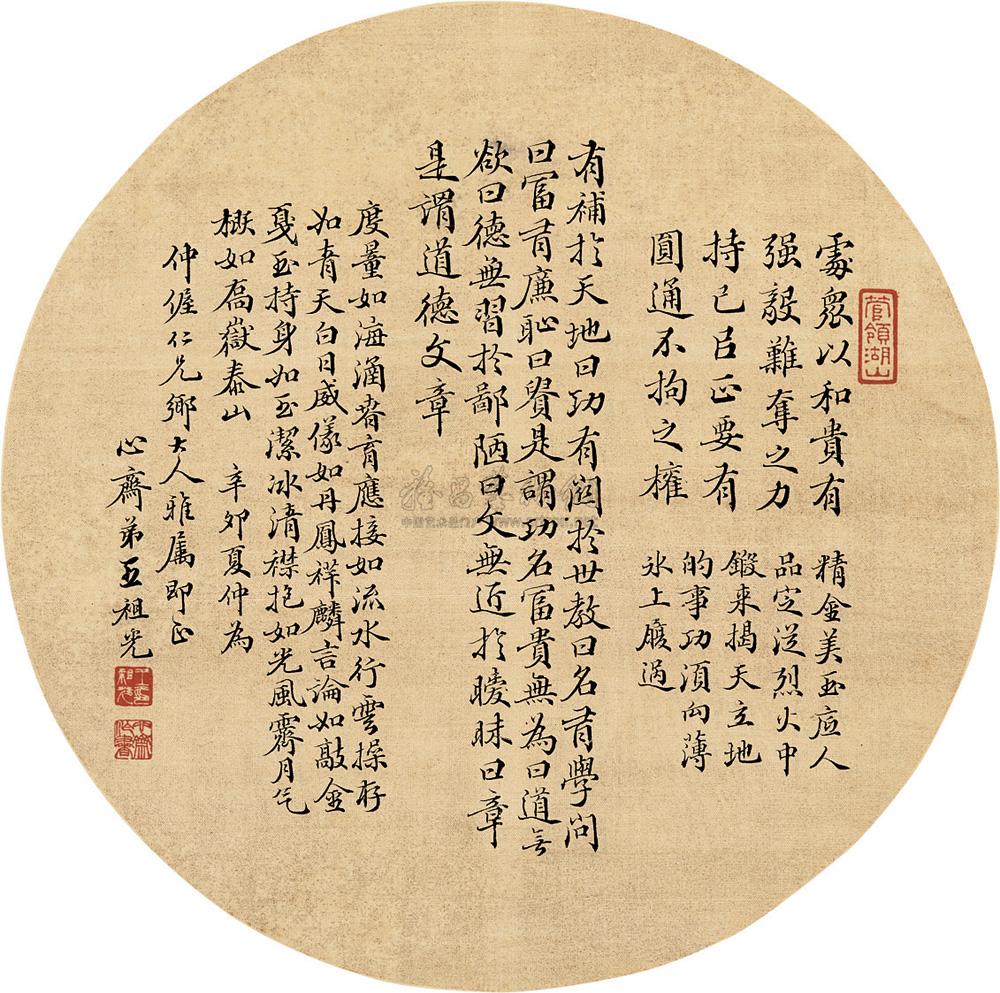 處衆以和貴有
强毅難奪之力
持己以正要有
圓通不拘之權
精金美玉底人
品定從烈火中
鍛來揭天立地
的事功須向薄
氷上履過
有補於天地曰功有關於世教曰名有學問
曰富有廉恥曰貴是謂功名富貴無為曰道無
欲曰德無習於鄙陋曰文無近於曖昧曰章
是謂道德文章
度量如海涵春育應接如流水行雲操存
如青天白日威儀如丹鳳祥麟言論如敲金
戛玉持身如玉潔冰清襟抱如光風霽月气
概如喬嶽泰山 辛卯夏仲為
仲偓仁兄鄉大人雅属即正
心齋弟王祖光
管領湖山